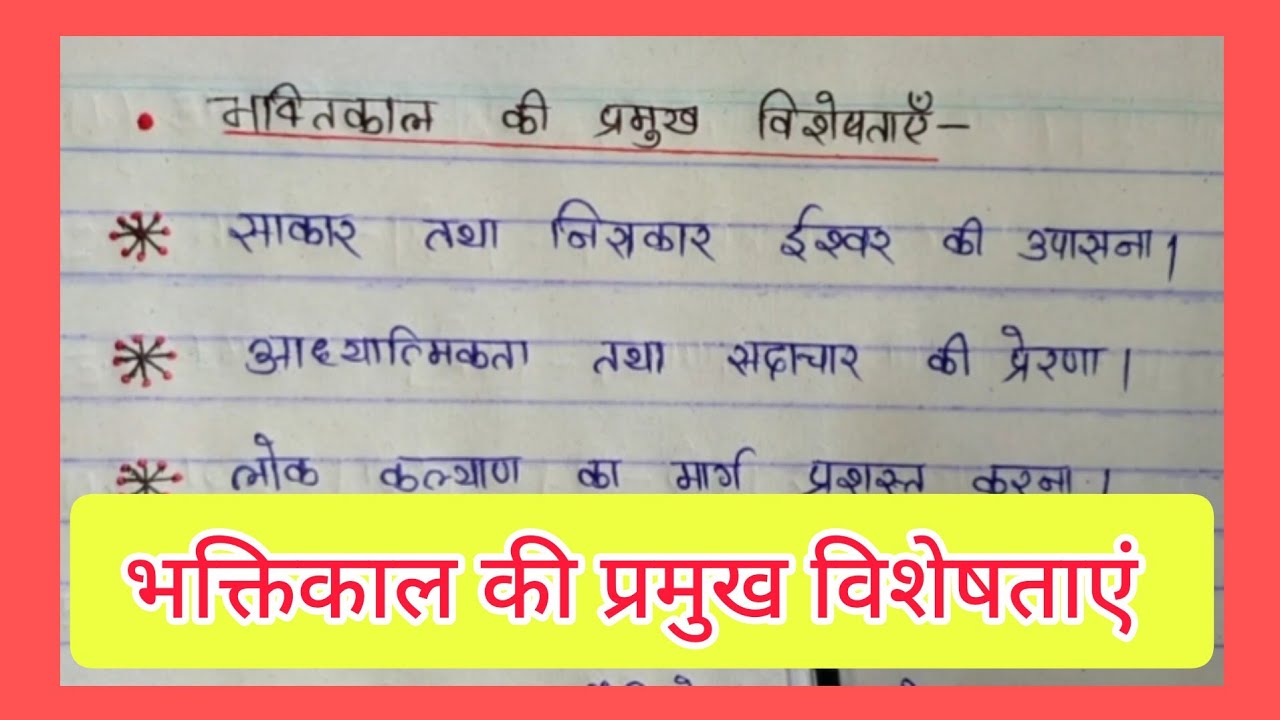 भक्तिकाल की प्रमुख विशेषताएँ-
साकार तथा निराकार ईश्वर की उपासना।
आध्यात्मिकता तथा सदाचार की प्रेरणा।
लोक कल्याण का मार्ग प्रशस्त करना।
भक्तिकाल की प्रमुख विशेषताएं